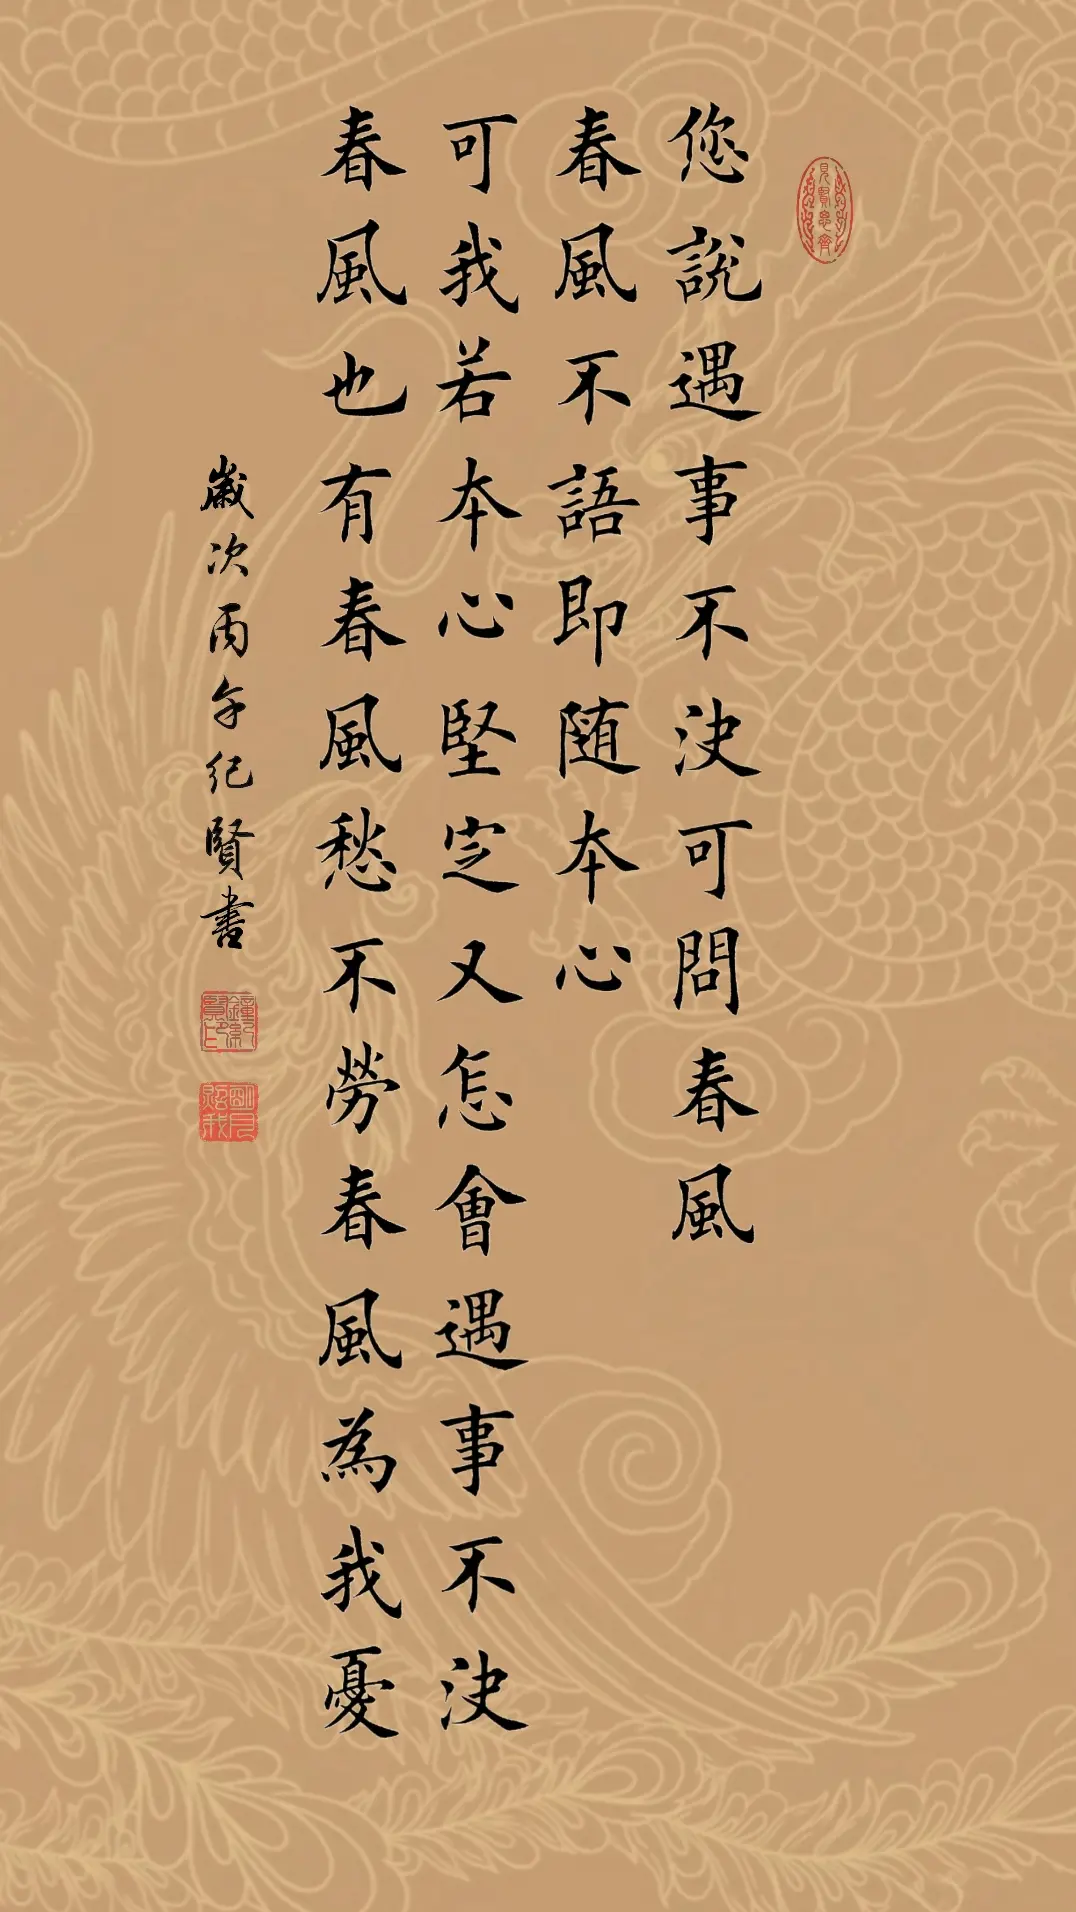 您說遇事不決可問春風
春風不語即随本心
可我若本心堅定又怎會遇事不決
春風也有春風愁不勞春風為我憂
歲次丙午紀賢書
見賢思齊
鐘紀賢印